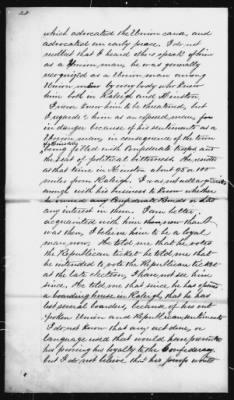 which advocated the Union cause, and
advocated an early peace. I do not
recollect that I heard others speak of him
as a Union man, he was generally
recognized as a Union man among
Union men by everybody who knew
him both in Raleigh and
I never knew him to be threatened, but
I regarded him as an and man, &
in danger because of his sentiments as a
Union man, in consequence of the town
being filled with Confederate troops and
the heat of political bitterness. He resided
at that time in about 25 or
miles from Raleigh. I was not
enough with his business to know whether
he owned any Confederate Bonds or had
any interest in them. I am better
acquainted with him now than I
was then, I believe him to be a loyal
man, now. He told me that he votes
the Republican ticket he told me that
he intended to vote the Republican ticket
at the late election, I have not seen him
since. He told me that since he has
a boarding house in Raleigh, that he has
lost several boarders, because of his out-
spoken Union and Republican sentiments
I do not know that any act done, or
language used that would have prevented
his proving his loyalty to the Confederacy,
but I do not believe that his proofs would